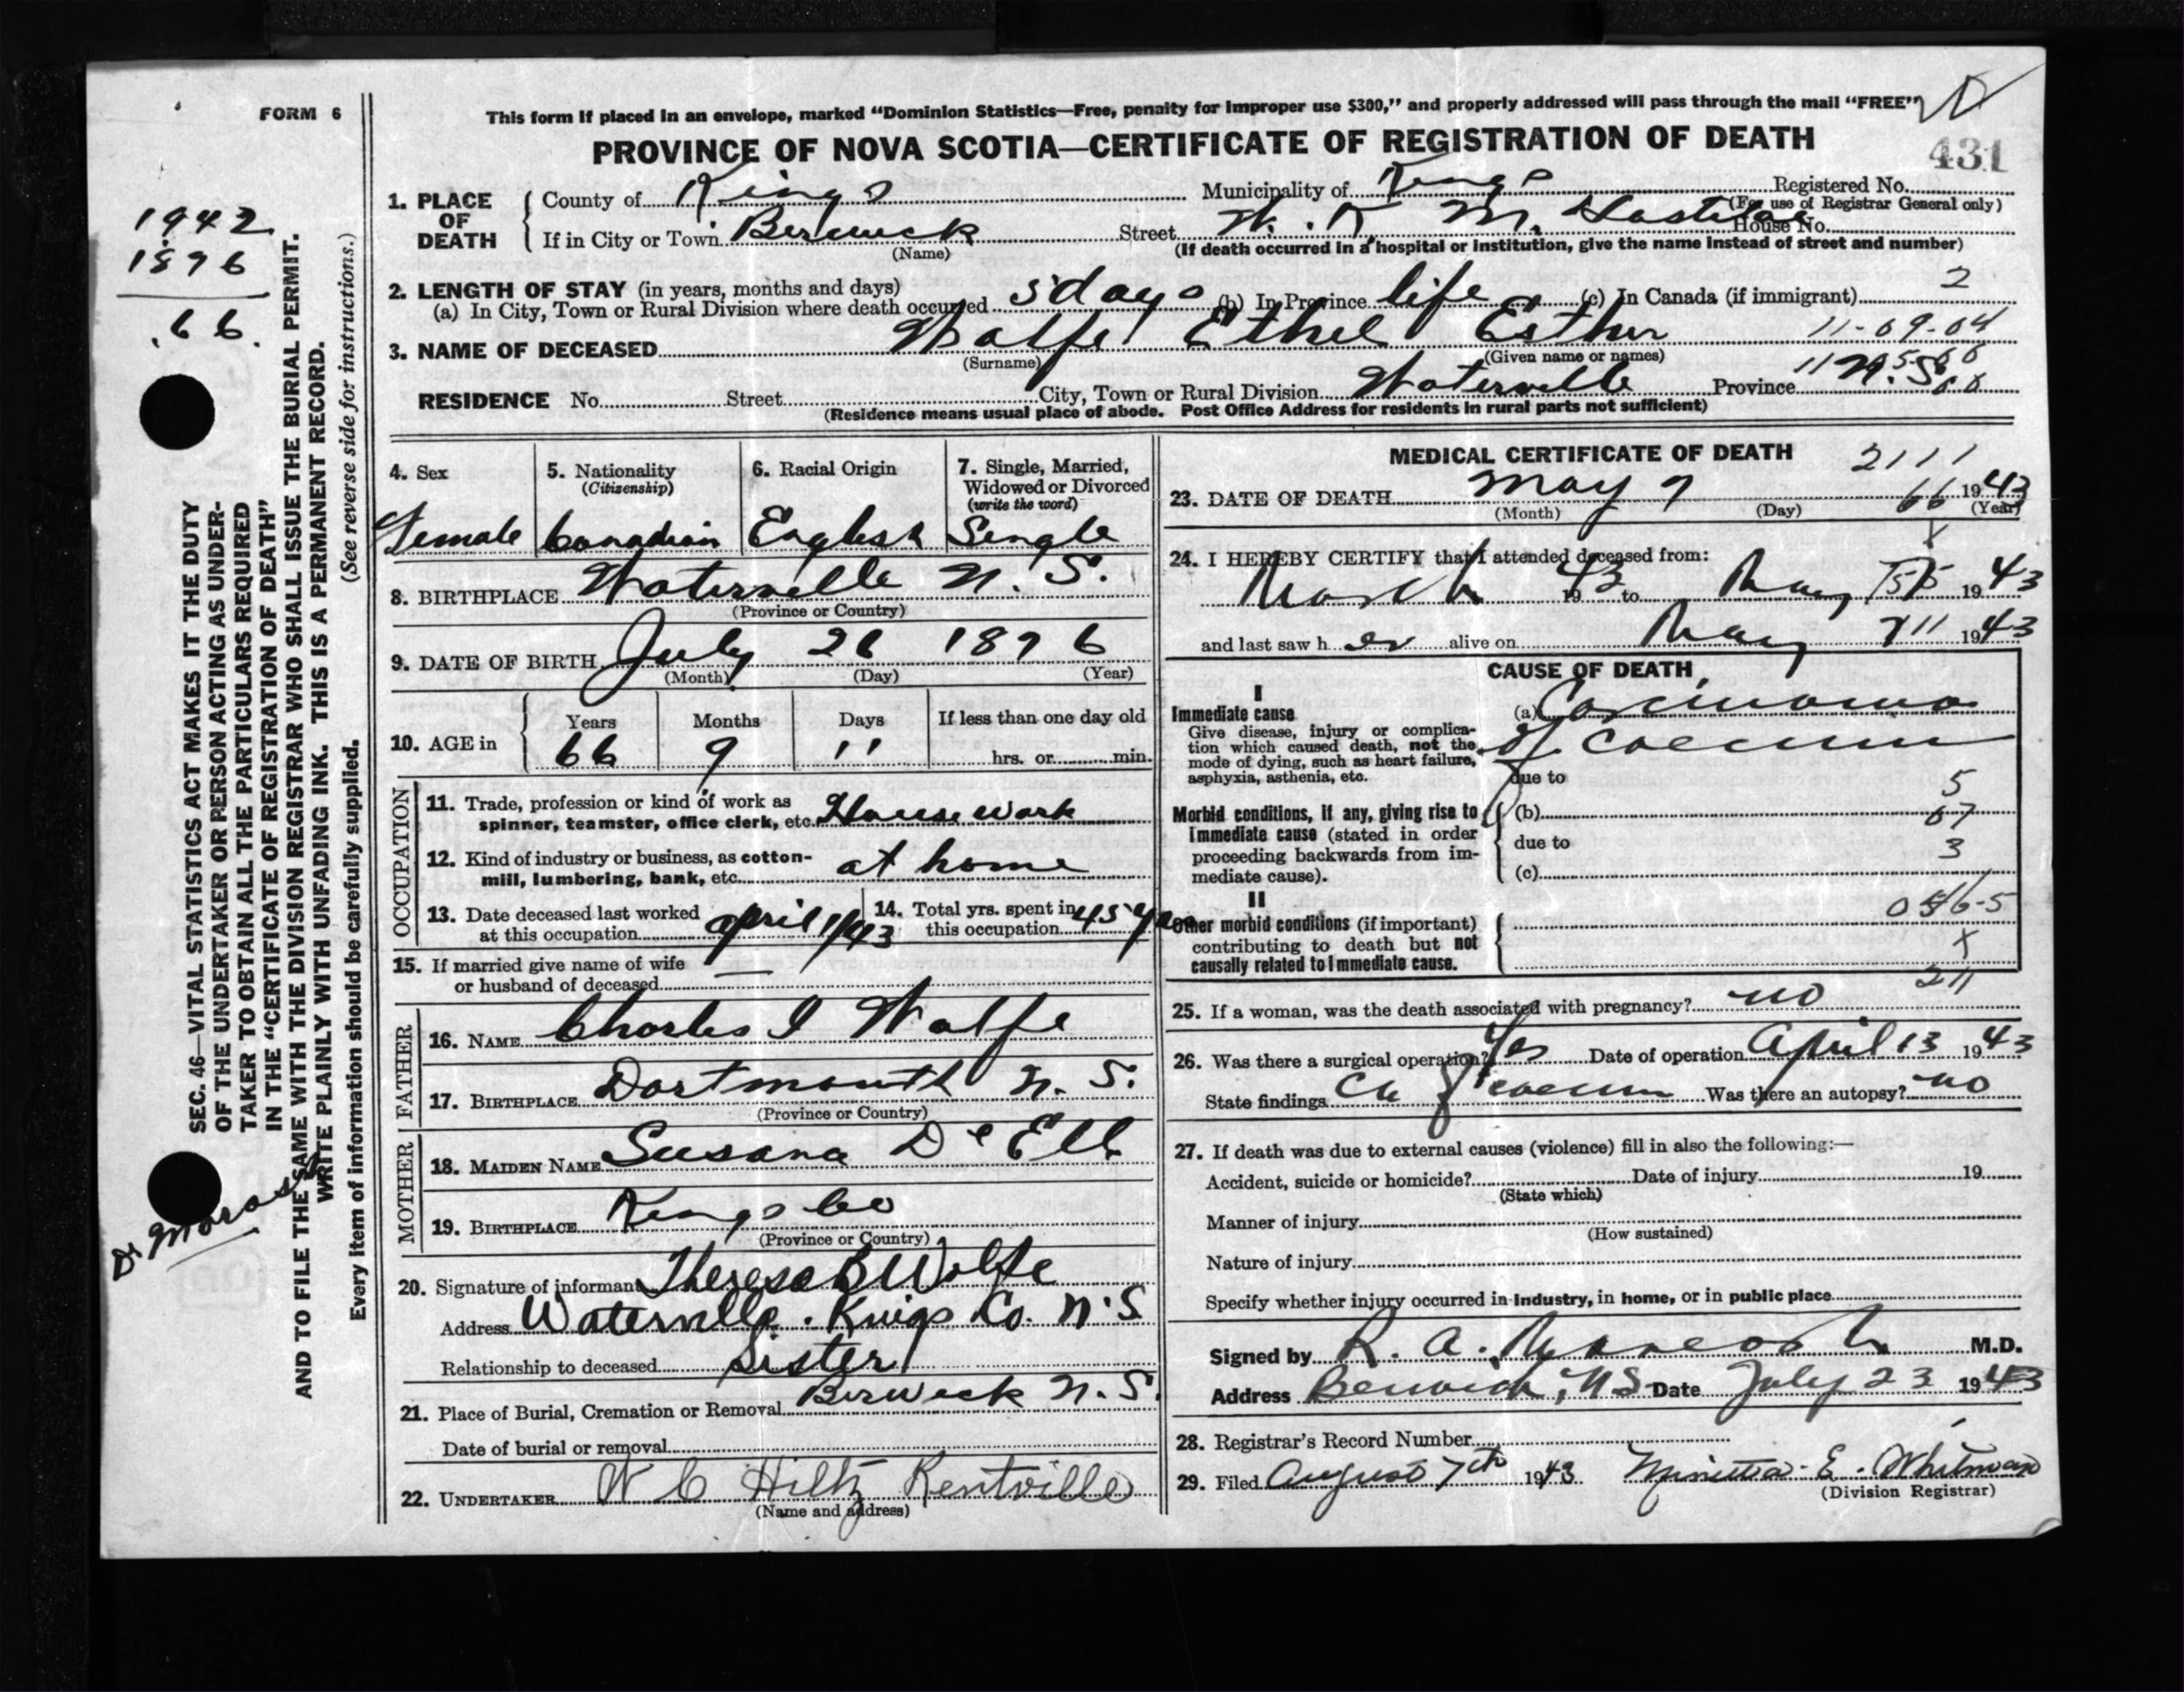 FORM 6
This form if placed in an envelope, marked "Dominion Statistics—Free, penalty for improper use $300," and properly addressed will pass through the mail "FREE"
PROVINCE OF NOVA SCOTIA—CERTIFICATE OF REGISTRATION OF DEATH
431
1. PLACE OF DEATH County of Kings Municipality of Kings Registered No.
(For use of Registrar General only)
If in City or Town Berwick Street W. K. M. Hospital House No.
(Name) (If death occurred in a hospital or institution, give the name instead of street and number)
2. LENGTH OF STAY (in years, months and days)
(a) In City, Town or Rural Division where death occurred 5 days (b) In Province life (c) In Canada (if immigrant) 2
3. NAME OF DECEASED Wolfe Ethel Esther 11-09-04
(Surname) (Given name or names)
RESIDENCE No. Street City, Town or Rural Division Waterville Province N.S.
(Residence means usual place of abode. Post Office Address for residents in rural parts not sufficient)
1942
1876
66
SEC. 46—VITAL STATISTICS ACT MAKES IT THE DUTY
OF THE UNDERTAKER OR PERSON ACTING AS UNDER-
TAKER TO OBTAIN ALL THE PARTICULARS REQUIRED
IN THE "CERTIFICATE OF REGISTRATION OF DEATH"
AND TO FILE THE SAME WITH THE DIVISION REGISTRAR WHO SHALL ISSUE THE BURIAL PERMIT.
WRITE PLAINLY WITH UNFADING INK. THIS IS A PERMANENT RECORD.
Every item of information should be carefully supplied. (See reverse side for instructions.)
Dr
4. Sex 5. Nationality (Citizenship) 6. Racial Origin 7. Single, Married, Widowed or Divorced (write the word)
Female Canadian English Single
8. BIRTHPLACE Waterville N.S.
(Province or Country)
9. DATE OF BIRTH July 26 1876
(Month) (Day) (Year)
10. AGE in Years Months Days If less than one day old
66 9 11 hrs. or min.
OCCUPATION
11. Trade, profession or kind of work as
spinner, teamster, office clerk, etc. House work
12. Kind of industry or business, as cotton-
mill, lumbering, bank, etc. at home
13. Date deceased last worked
at this occupation April 1/43
14. Total yrs. spent in
this occupation 45 yrs
15. If married give name of wife
or husband of deceased —
FATHER
16. NAME Charles I Wolfe
17. BIRTHPLACE Dartmouth N.S.
(Province or Country)
MOTHER
18. MAIDEN NAME Susana De Ell
19. BIRTHPLACE Kings Co
(Province or Country)
20. Signature of informant Theresa B Wolfe
Address Waterville. Kings Co. N.S
Relationship to deceased Sister
21. Place of Burial, Cremation or Removal Berwick N.S.
Date of burial or removal
22. UNDERTAKER W C Hiltz Kentville
(Name and address)
MEDICAL CERTIFICATE OF DEATH 2111
23. DATE OF DEATH May 7 66 1943
(Month) (Day) (Year)
24. I HEREBY CERTIFY that I attended deceased from:
March 1943 to May 1943
and last saw her alive on May 1943
CAUSE OF DEATH
I
Immediate cause (a) Carcinoma
of coecum
Give disease, injury or complica-
tion which caused death, not the
mode of dying, such as heart failure,
asphyxia, asthenia, etc.
due to
5
Morbid conditions, if any, giving rise to
immediate cause (stated in order
proceeding backwards from im-
mediate cause).
(b) 67
due to 3
(c)
II
Other morbid conditions (if important)
contributing to death but not
causally related to immediate cause.
X
211
25. If a woman, was the death associated with pregnancy? no
26. Was there a surgical operation? Yes Date of operation April 13 1943
State findings Ca of coecum Was there an autopsy? no
27. If death was due to external causes (violence) fill in also the following:—
Accident, suicide or homicide? Date of injury 19
(State which)
Manner of injury
(How sustained)
Nature of injury
Specify whether injury occurred in industry, in home, or in public place
Signed by R. A. M.D.
Address Berwick, NS Date July 23 1943
28. Registrar's Record Number
29. Filed August 7th 1943 E. Whitman
(Division Registrar)